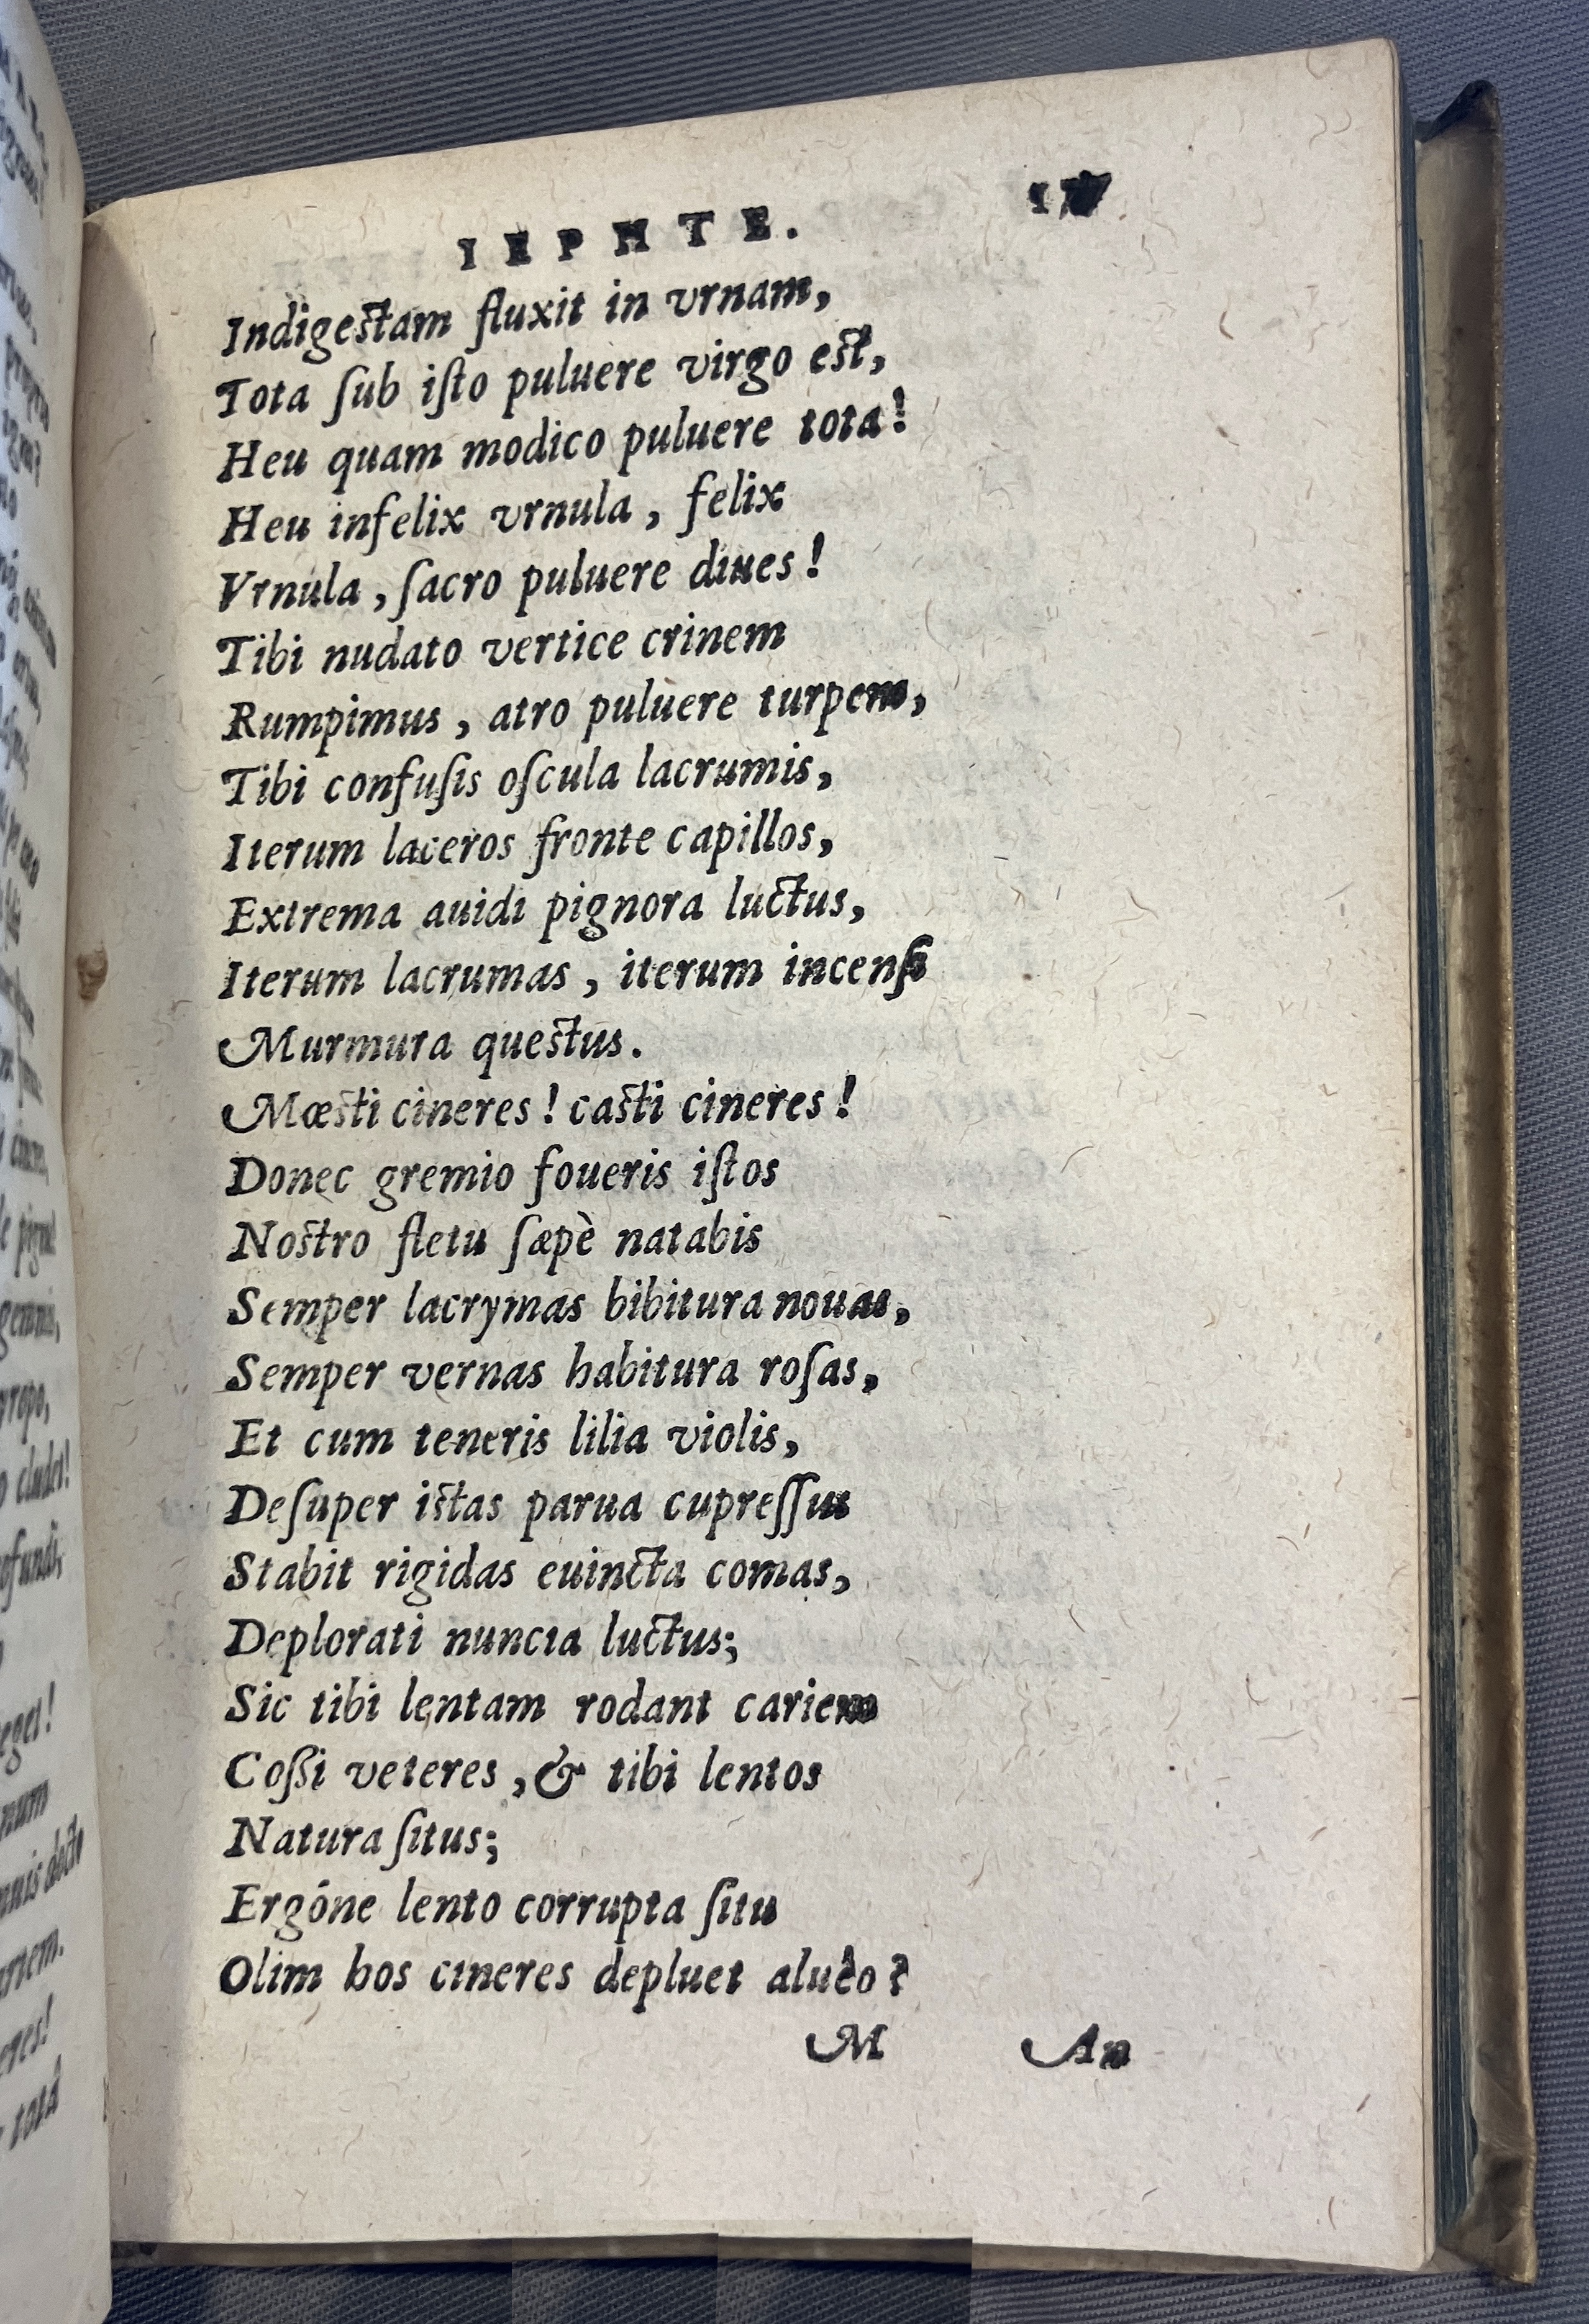 IEPHTE.
Indigestam fluxit in vrnam,
Tota ſub iſto puluere virgo est,
Heu quam modico puluere tota!
Heu infelix vrnula, felix
Vrnula, ſacro puluere diues!
Tibi nudato vertice crinem
Rumpimus, atro puluere turpem,
Tibi confuſis oſcula lacrumis,
Iterum laceros fronte capillos,
Extrema auidi pignora luctus,
Iterum lacrumas, iterum incenſi
Murmura questus.
Mœsti cineres! casti cineres!
Donec gremio foueris iſtos
Nostro fletu ſæpè natabis
Semper lacrymas bibitura nouas,
Semper vernas habitura roſas,
Et cum teneris lilia violis,
Deſuper istas parua cupreſſus
Stabit rigidas euincta comas,
Deplorati nuncia luctus;
Sic tibi lentam rodant cariem
Coßi veteres, & tibi lentos
Natura ſitus;
Ergóne lento corrupta ſitu
Olim hos cineres depluet alueo?
M An